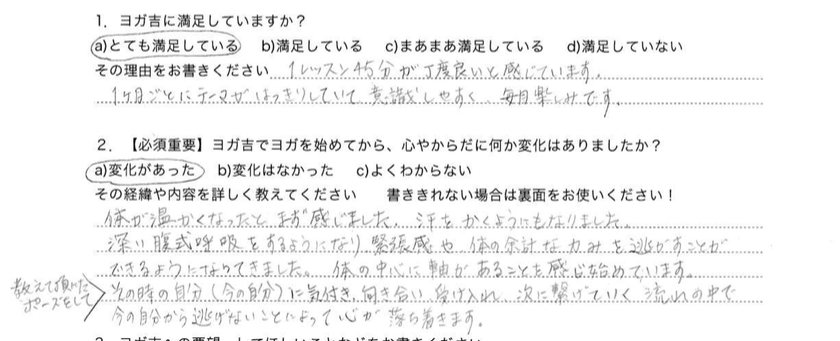 1．ヨガ吉に満足していますか？
a)とても満足している　b)満足している　c)まあまあ満足している　d)満足していない
その理由をお書きください 1レッスン45分が丁度良いと感じています。
1ヶ月ごとにテーマがはっきりしていて 意識しやすく、毎月楽しみです。
2．【必須重要】ヨガ吉でヨガを始めてから、心やからだに何か変化はありましたか？
a)変化があった　b)変化はなかった　c)よくわからない
その経緯や内容を詳しく教えてください　　書ききれない場合は裏面をお使いください！
体が温かくなったと まず感じました。汗を かくようにもなりました。
深い腹式呼吸をするようになり、緊張感や 体の余計な力みを逃がすことが
できるようになってきました。体の中心に軸があることを感じ始めています。
教えて頂いた
ポーズをして
その時の自分（今の自分）に気付き、向き合い、受け入れ、次に繋げていく 流れの中で
今の自分から逃げないことによって心が 落ち着きます。